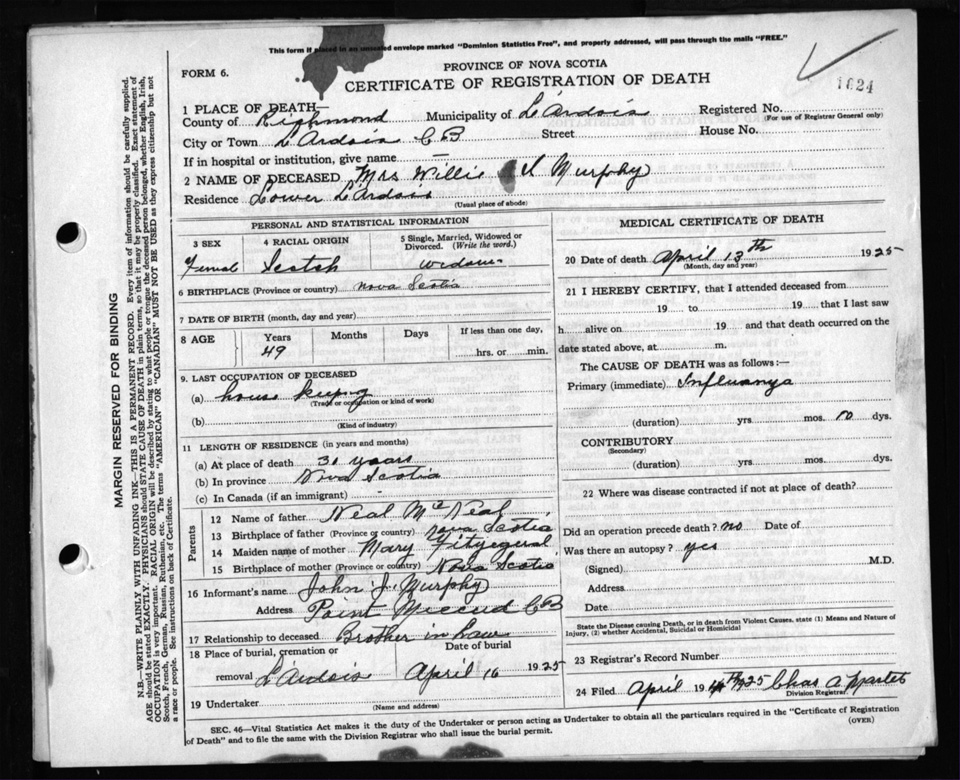 This form if placed in an unsealed envelope marked "Dominion Statistics Free", and properly addressed, will pass through the mails "FREE."
FORM 6.
PROVINCE OF NOVA SCOTIA
CERTIFICATE OF REGISTRATION OF DEATH
1624
1 PLACE OF DEATH—
County of Richmond Municipality of L'Ardois Registered No.
(For use of Registrar General only)
City or Town L'Ardois C B Street House No.
If in hospital or institution, give name
2 NAME OF DECEASED Mrs Willie Murphy
Residence Lower L'Ardois
(Usual place of abode)
PERSONAL AND STATISTICAL INFORMATION
3 SEX 4 RACIAL ORIGIN 5 Single, Married, Widowed or Divorced. (Write the word.)
Femal Scotch Widow
6 BIRTHPLACE (Province or country) Nova Scotia
7 DATE OF BIRTH (month, day and year)
8 AGE Years Months Days If less than one day,
49 hrs. or min.
9. LAST OCCUPATION OF DECEASED
(a) house keeping
(Trade or occupation or kind of work)
(b)
(Kind of industry)
11 LENGTH OF RESIDENCE (in years and months)
(a) At place of death 30 years
(b) In province Nova Scotia
(c) In Canada (if an immigrant)
Parents
12 Name of father Neal McNeal
13 Birthplace of father (Province or country) Nova Scotia
14 Maiden name of mother Mary Fitzgeral
15 Birthplace of mother (Province or country) Nova Scotia
16 Informant's name John J. Murphy
Address Point Miccud C B
17 Relationship to deceased Brother in Law
18 Place of burial, cremation or removal Date of burial
L'Ardois April 16 1925
19 Undertaker
(Name and address)
MEDICAL CERTIFICATE OF DEATH
20 Date of death April 13th 1925
(Month, day and year)
21 I HEREBY CERTIFY, that I attended deceased from
19 to 19 that I last saw
h alive on 19 and that death occurred on the
date stated above, at m.
The CAUSE OF DEATH was as follows:—
Primary (immediate) Influenza
(duration) yrs. mos. 10 dys.
CONTRIBUTORY
(Secondary)
(duration) yrs. mos. dys.
22 Where was disease contracted if not at place of death?
Did an operation precede death? no Date of
Was there an autopsy? yes
(Signed) M.D.
Address
Date
State the Disease causing Death, or in death from Violent Causes, state (1) Means and Nature of
Injury, (2) whether Accidental, Suicidal or Homicidal
23 Registrar's Record Number
24 Filed April 1925 Chas A Martet
Division Registrar
SEC. 46—Vital Statistics Act makes it the duty of the Undertaker or person acting as Undertaker to obtain all the particulars required in the "Certificate of Registration
of Death" and to file the same with the Division Registrar who shall issue the burial permit.
(OVER)
MARGIN RESERVED FOR BINDING
N.B.—WRITE PLAINLY WITH UNFADING INK—THIS IS A PERMANENT RECORD. Every item of information should be carefully supplied.
AGE should be stated EXACTLY. PHYSICIANS should STATE CAUSE OF DEATH in plain terms, so that it may be properly classified. Exact statement of
OCCUPATION is very important. RACIAL ORIGIN will be described by stating to what people or tongue the deceased person belonged, whether English, Irish,
Scotch, French, German, Russian, Ruthenian, etc. The terms "AMERICAN" OR "CANADIAN" MUST NOT BE USED as they express citizenship but not
a race or people. See instructions on back of Certificate.